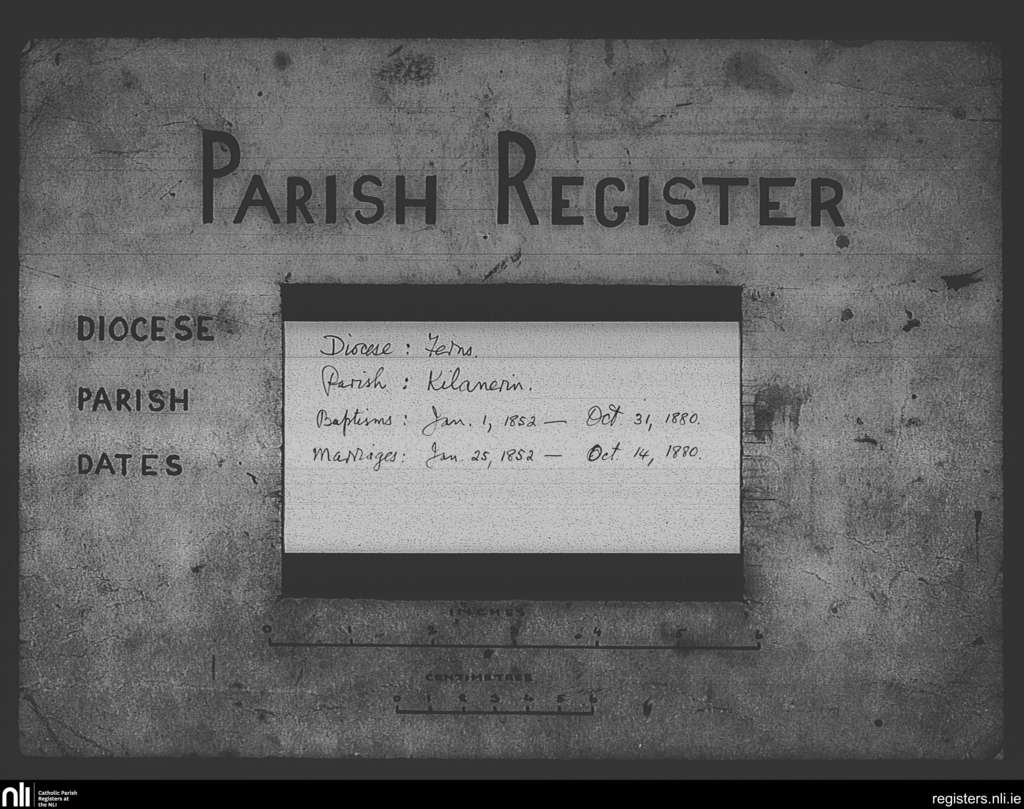 PARISH REGISTER
DIOCESE
PARISH
DATES
Diocese : Ferns.
Parish : Kilanerin.
Baptisms : Jan. 1, 1852 — Oct 31, 1880.
Marriages : Jan. 25, 1852 — Oct. 14, 1880.
INCHES
0 1 2 3 4 5 6
CENTIMETRES
0 1 2 3 4 5 6
nli Catholic Parish
Registers at
the NLI
registers.nli.ie